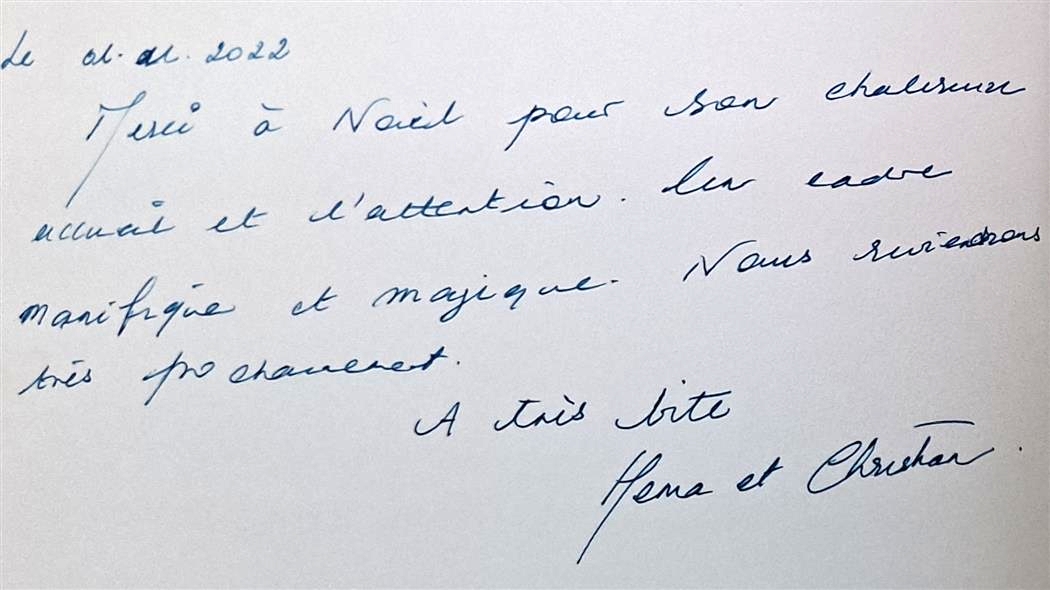 Le 01.01.2022
Merci à Naïl pour son chaleureux
accueil et l'attention. Un cadre
manifique et magique. Nous reviendrons
très prochainement.
A très bite
Hema et Christian.